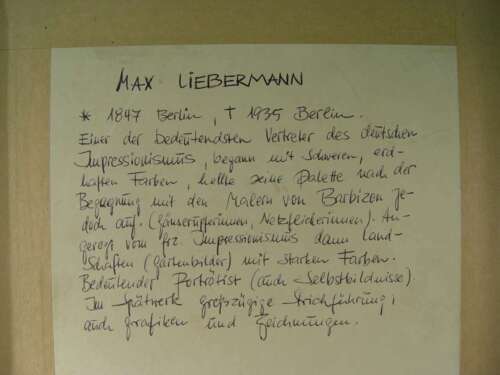 MAX LIEBERMANN
* 1847 Berlin, † 1935 Berlin.
Einer der bedeutendsten Vertreter des deutschen
Impressionismus, begann mit schweren, erd-
haften Farben, hellte seine Palette nach der
Begegnung mit den Malern von Barbizon je-
doch auf. (Gänserupferinnen, Netzflickerinnen). An-
geregt vom frz. Impressionismus dann Land-
schaften (Gartenbilder) mit starken Farben.
Bedeutender Porträtist (auch Selbstbildnisse).
Im Spätwerk großzügige Strichführung,
auch Grafiken und Zeichnungen.